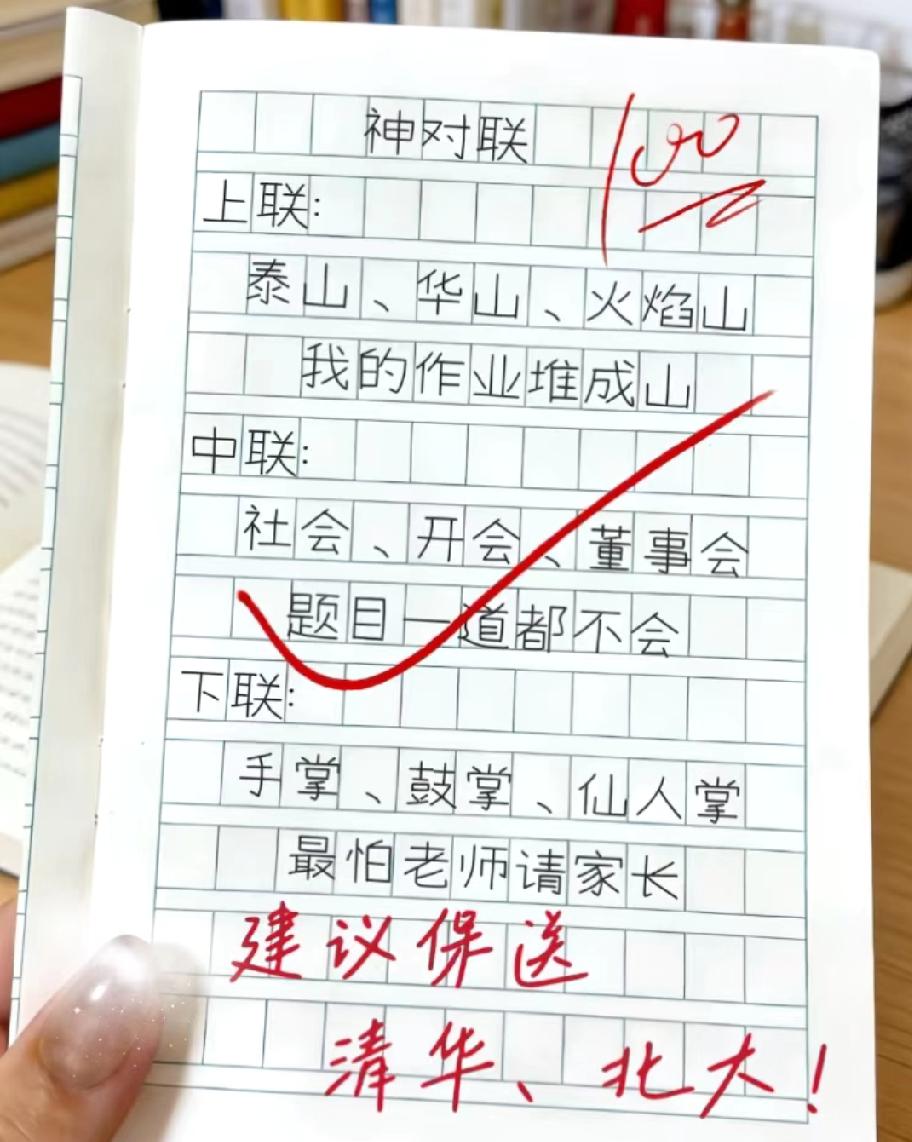 神对联
100
上联:
泰山、华山、火焰山
我的作业堆成山
中联:
社会、开会、董事会
题目一道都不会
下联:
手掌、鼓掌、仙人掌
最怕老师请家长
建议保送
清华、北大!